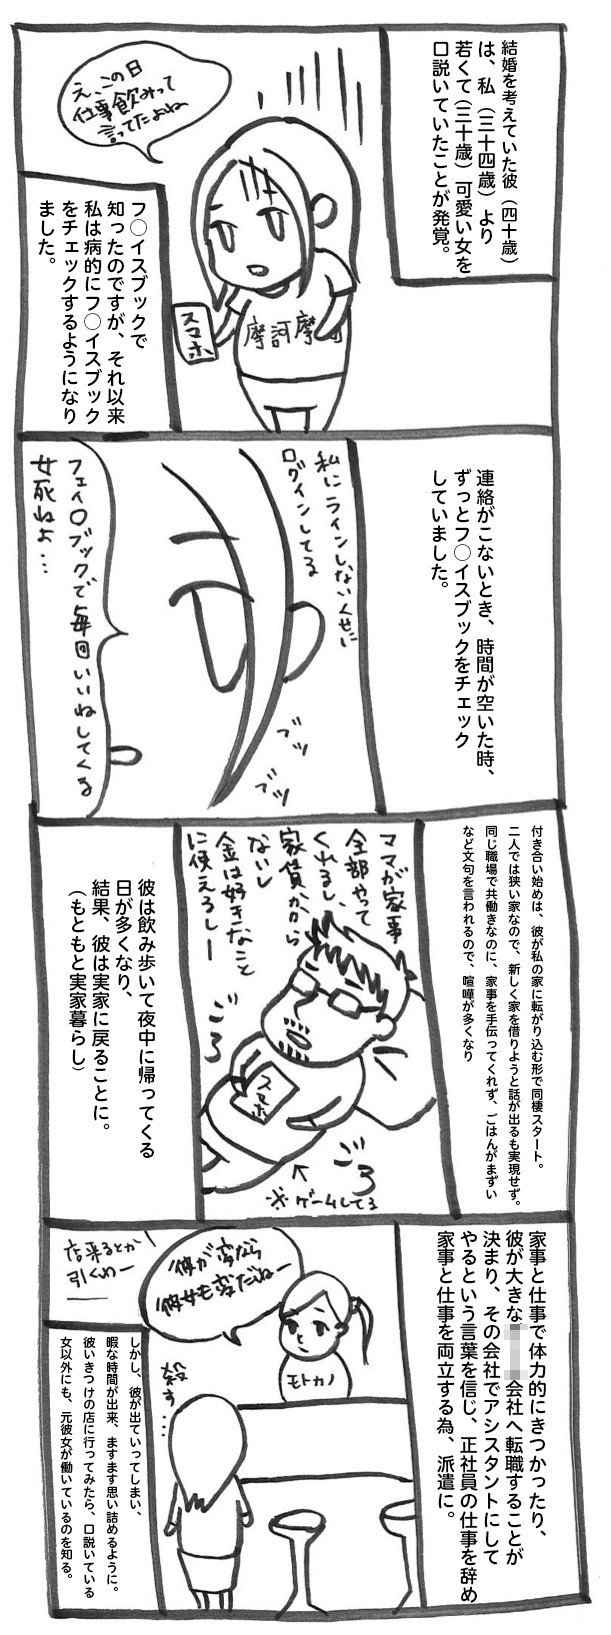 結婚を考えていた彼（四十歳）
は、私（三十四歳）より
若くて（三十歳）可愛い女を
口説いていたことが発覚。
え、この日
仕事飲みって
言ってたよね
スマホ
摩訶摩
フ○イスブックで
知ったのですが、それ以来
私は病的にフ○イスブック
をチェックするようになり
ました。
連絡がこないとき、時間が空いた時、
ずっとフ○イスブックをチェック
していました。
私にラインしないくせに
ログインしてる
ブツ
ブツ
フェイ○ブックで毎回いいねしてくる
女死ねよ…
付き合い始めは、彼が私の家に転がり込む形で同棲スタート。
二人では狭い家なので、新しく家を借りようと話が出るも実現せず。
同じ職場で共働きなのに、家事を手伝ってくれず、ごはんがまずい
など文句を言われるので、喧嘩が多くなり
ママが家事
全部やって
くれるし、
家賃かから
ないし
金は好きなこと
に使えるしー
ごろ
スマホ
ごろ
※ゲームしてる
彼は飲み歩いて夜中に帰ってくる
日が多くなり、
結果、彼は実家に戻ることに。
（もともと実家暮らし）
家事と仕事で体力的にきつかったり、
彼が大きな会社へ転職することが
決まり、その会社でアシスタントにして
やるという言葉を信じ、正社員の仕事を辞め
家事と仕事を両立する為、派遣に。
彼が変なら
彼女も変だねー
店来るとか
引くわー
モトカノ
殺す…
しかし、彼が出ていってしまい、
暇な時間が出来、ますます思い詰めるように。
彼いきつけの店に行ってみたら、口説いている
女以外にも、元彼女が働いているのを知る。